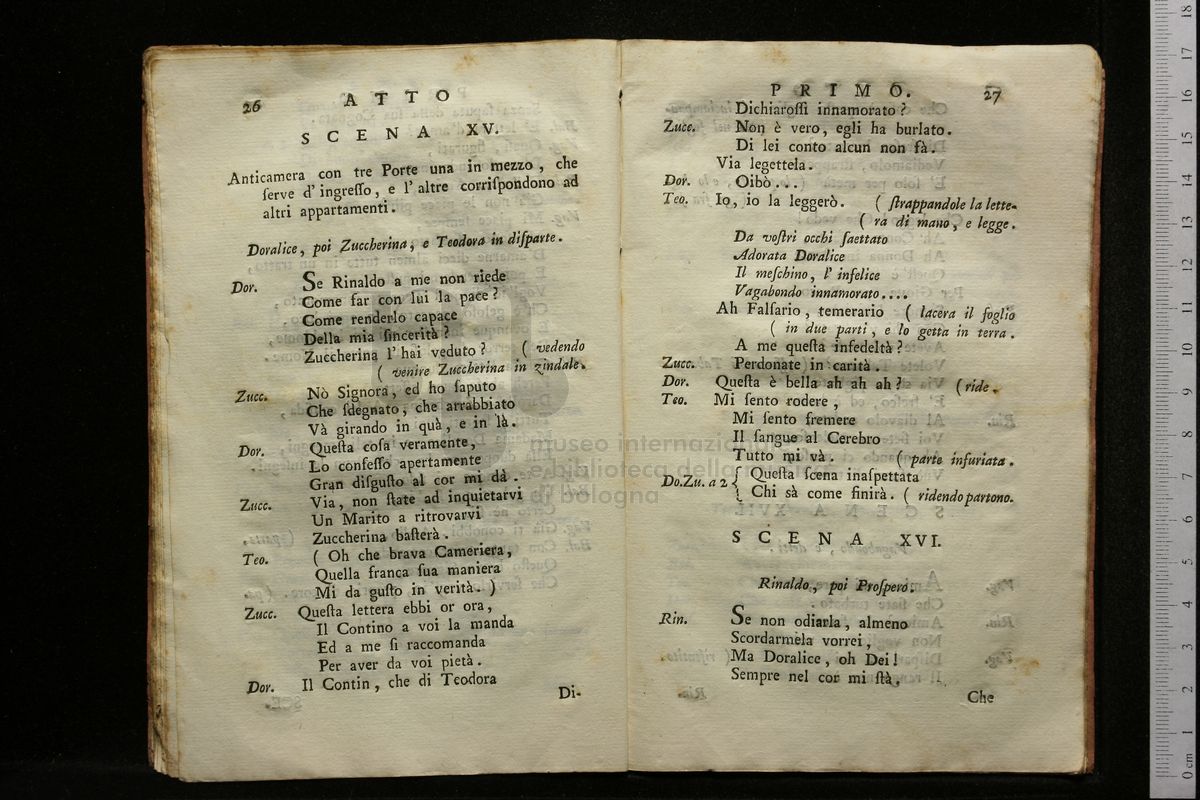 26 ATTO
SCENA XV.
Anticamera con tre Porte una in mezzo, che
ſerve d' ingreſſo, e l' altre corriſpondono ad
altri appartamenti.
Doralice, poi Zuccherina, e Teodora in diſparte.
Dor. Se Rinaldo a me non riede
Come far con lui la pace?
Come renderlo capace
Della mia ſincerità?
Zuccherina l' hai veduto? ( vedendo
( venire Zuccherina in zindale.
Zucc. Nò Signora, ed ho ſaputo
Che ſdegnato, che arrabbiato
Và girando in quà, e in là.
Dor. Queſta coſa veramente,
Lo confeſſo apertamente
Gran diſguſto al cor mi dà.
Zucc. Via, non ſtate ad inquietarvi
Un Marito a ritrovarvi
Zuccherina baſterà.
Teo. ( Oh che brava Cameriera,
Quella franca ſua maniera
Mi da guſto in verità. )
Zucc. Queſta lettera ebbi or ora,
Il Contino a voi la manda
Ed a me ſi raccomanda
Per aver da voi pietà.
Dor. Il Contin, che di Teodora
Di-
PRIMO. 27
Dichiaroſſi innamorato?
Zucc. Non è vero, egli ha burlato.
Di lei conto alcun non fà.
Via legettela.
Dor. Oibò...
Teo. Io, io la leggerò. ( ſtrappandole la lette-
( ra di mano, e legge.
Da voſtri occhi ſaettato
Adorata Doralice
Il meſchino, l' infelice
Vagabondo innamorato....
Ah Falſario, temerario ( lacera il foglio
( in due parti, e lo getta in terra.
A me queſta infedeltà?
Zucc. Perdonate in carità.
Dor. Queſta è bella ah ah ah? (ride.
Teo. Mi ſento rodere,
Mi ſento fremere
Il ſangue al Cerebro
Tutto mi và. ( parte infuriata.
Do.Zu. a 2 { Queſta ſcena inaſpettata
Chi sà come finirà. ( ridendo partono.
SCENA XVI.
Rinaldo, poi Proſpero.
Rin. Se non odiarla, almeno
Scordarmela vorrei,
Ma Doralice, oh Dei!
Sempre nel cor mi ſtà,
Che
museo internazionale
e biblioteca della musica
di bologna